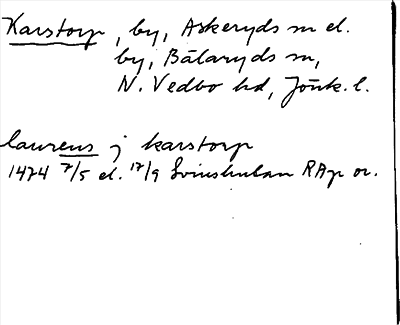 Karstorp, by, Askeryds sn el.
by, Bälaryds sn,
N. Vedbo hd, Jönk. l.
laurens j karstorp
1424 7/5 el. 17/9 Svinshulan RAp or.